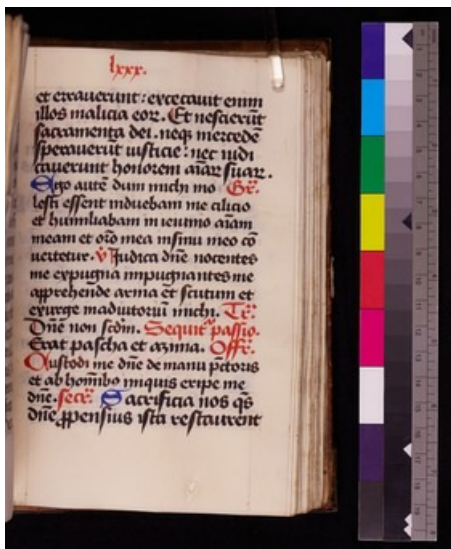 lxxx.
et erraverunt: excecavit enim
illos malicia eoꝝ. Et nescierūt
sacramenta dei. neqꝫ mercedē
speraverūt iusticie: nec iudi
caverunt honorem aīaꝝ suaꝝ.
Ego autē dum michi mo Gr̄.
lesti essent induebam me cilicio
et humiliabam in ieiunio aīam
meam et orō mea in sinu meo cō
vertetur. v̄ Iudica dn̄e nocentes
me expugna impugnantes me
apprehende arma et scutum et
exurge in adiutoriū michi. Tr̄.
Dn̄e non scdm̄. Sequit᷑ passio.
Erat pascha et azima. Offr̄.
Custodi me dn̄e de manu pctoris
et ab hoīibꝰ iniquis eripe me
dn̄e. secr̄. Sacrificia nos qs̄
dn̄e ꝓpensius ista restaurent